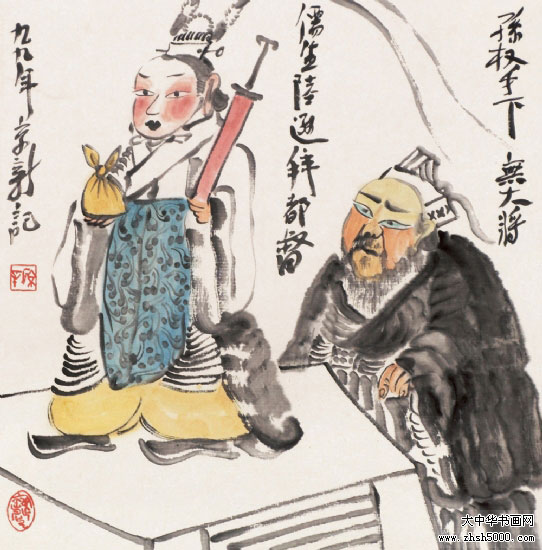 孫权手下無大將
儒生陸遜拜都督
九九年京新記
大中华书画网
www.zhsh5000.com